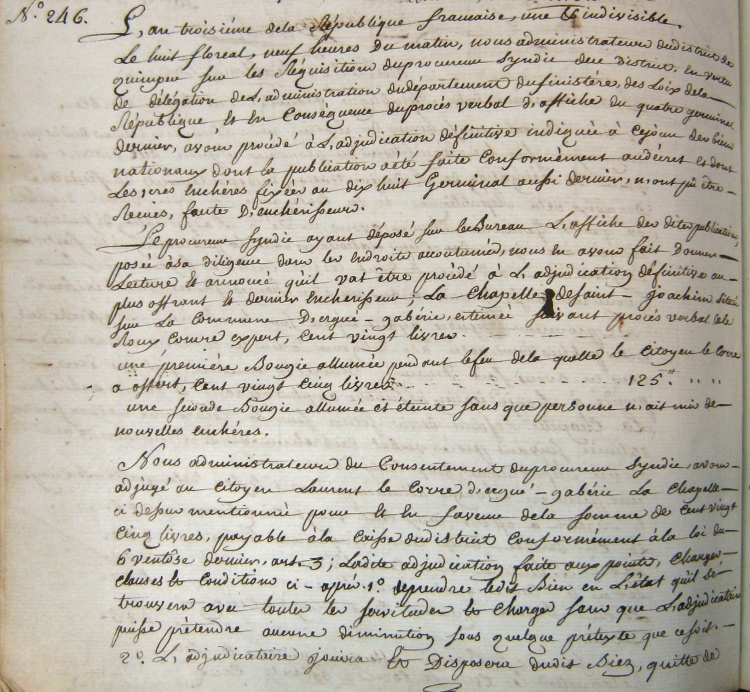 N.° 246.
L'an troisiéme dela République francaise, une & indivisible.
Le huit floreal, neuf heures du matin, nous administrateurs du district de
quimper sur les Réquisitions du procureur Syndic de ce District, en vertu
de délégation de L'administration du département du finistére, des Loix de la
République et en Conséquence du procés verbal d'affiche du quatre germinal
dernier, avons procédé à L'adjudication définitive indiquée à ce jour des biens
nationaux dont la publication a été faite Conformément au décret et dont
Les 1eres enchéres fixées au dix huit Germinal aussi dernier, n'ont pu être
Recues, faute D'enchérisseurs.
Le procureur Syndic ayant déposé sur le Bureau L'affiche des dites publications,
posée à sa diligence dans les Endroits acoutumés, nous en avons fait donner
Lecture et annoncé qu'il vat être procédé à L'adjudication définitive au
plus offrant et dernier encherisseur; La Chapelle de saint-joachim située
sur La Commune D'ergué-gabéric, estimée suivant procés verbal de le
Roux Corre expert, Cent vingt livres
une première Bougie allumée pendant le feu de la quelle le Citoyen le Corre
a offert, Cent vingt Cinq livres 125"
une seconde Bougie allumée et éteinte sans que personne n'ait mis de
nouvelles enchéres.
Nous administrateurs du Consentement du procureur Syndic, avons
adjugé au Citoyen Laurent le Corre, d'ergué-gabéric La Chapelle
ci dessus mentionnée pour et en faveur de la somme de Cent vingt
Cinq livres, payable à la Caisse du district Conformément à la loi du
6 ventôse dernier, art. 3; Ladite adjudication faite aux points, Charges
clauses & Conditions ci-aprés 1.° de prendre ledit Bien en L'état qu'il se
trouvera avec toutes les servitudes & Charges sans que L'adjudicataire
puisse prétendre aucune diminution sous quelque prétexte que ce soit.
2.° L'adjudicataire jouira & Disposera dudit Bien, quitte de